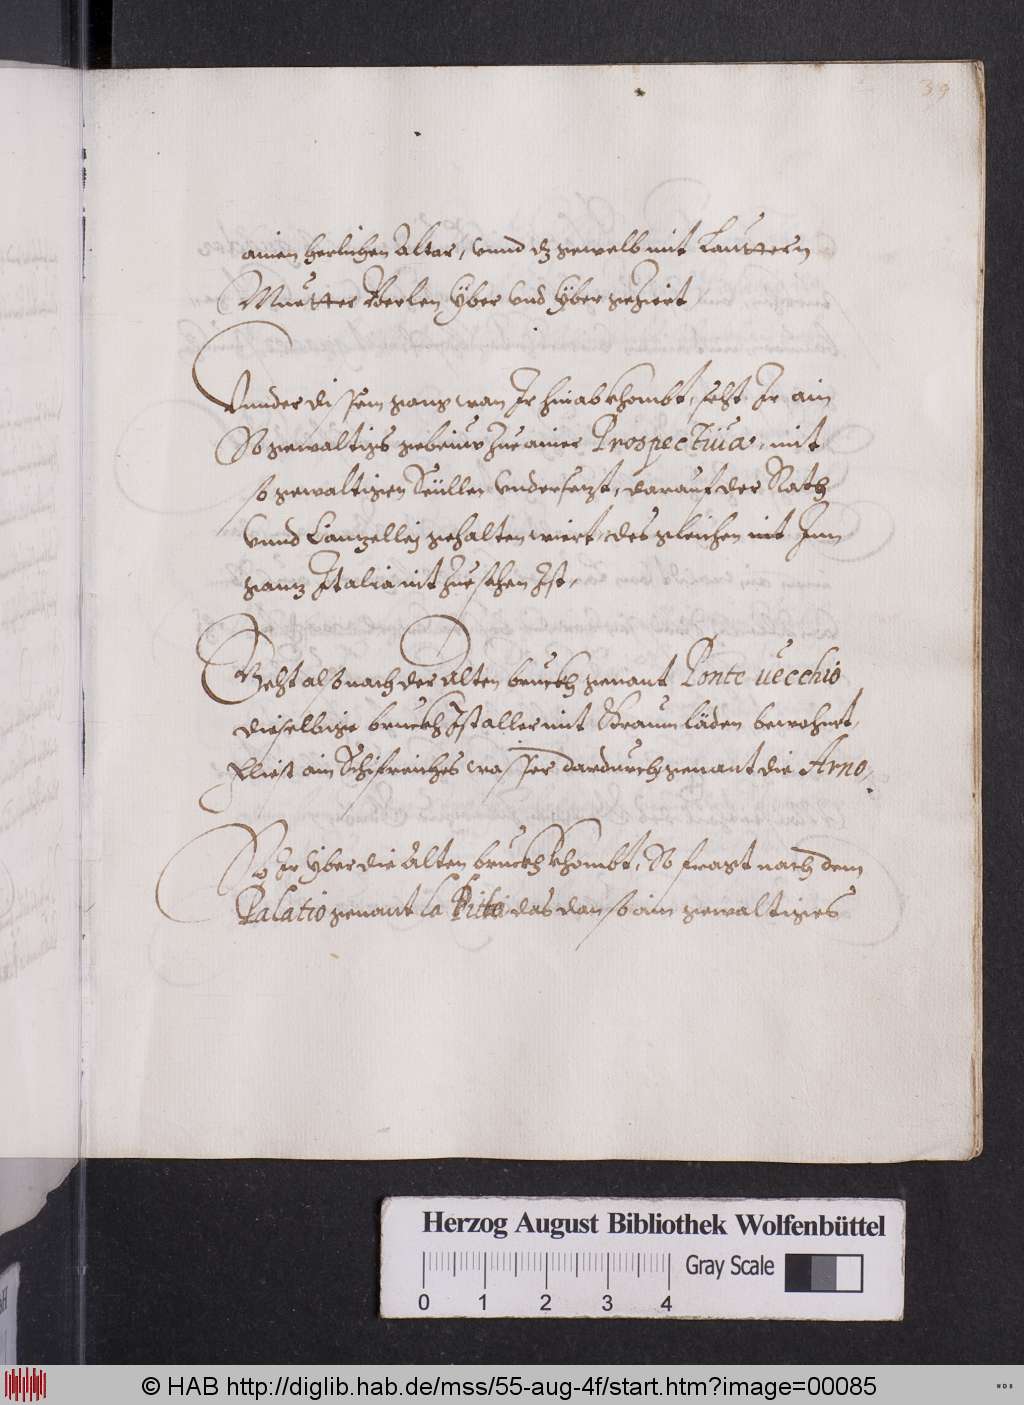 39
ainen herlichen Altar, vnnd dz gewelb mit Lautter
Muetter Berlen yber vnd yber geziert
Vnnder disem gang wan Ir hinab khombt, seht Ir ain
So gewaltigs gebeiw zue ainer Prospectiua, mit
so gewaltigen Seüllen vndersezt, darauf der Rath
vnnd Canzelleÿ gehalten wiert, des gleichen nit Inn
ganz Italia nit zue sehen Ist,
Geht als nach der Alten bruckh genant Ponte uecchio
dieselbige bruckh Ist alles mit Khraum läden bewohnet,
fliest ain Schifreiches wasser dardurch genant die Arno,
So Ir yber die Alten bruckh khombt, So fragt nach dem
Palatio genant la Pitti das dan so ain gewaltiges
Herzog August Bibliothek Wolfenbüttel
0 1 2 3 4
Gray Scale
© HAB http://diglib.hab.de/mss/55-aug-4f/start.htm?image=00085